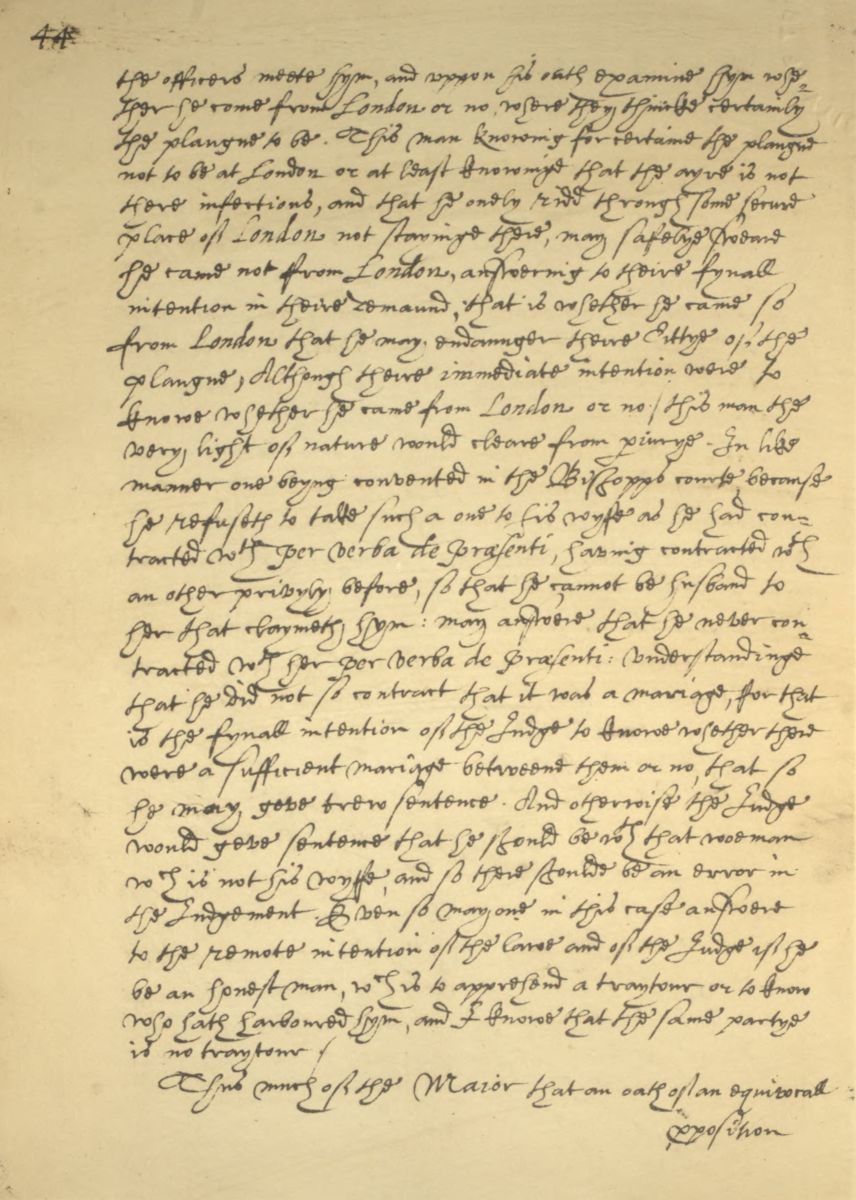 44
the officers meete hym, and uppon his oath examine hym whe-
ther he come from London or no, where they thincke certainly
the plaugue to be. This man knowing for certaine the plaugue
not to be at London or at least knowinge that the ayre is not
there infectious, and that he onely ridd through some secure
place of London not stayinge there, may safelye sweare
he came not from London, answering to theire fynall
intention in theire demaund, that is whether he came so
from London that he may endaunger theire Cittye of the
plaugue, Although theire immediate intention were to
knowe whether he came from London or no / this man the
very light of nature would cleare from periurye. In like
manner one beyng convented in the Bishopps courte because
he refuseth to take such a one to his wyffe as he had con-
tracted wth per verba de præsenti, having contracted wth
an other privyly before, so that he cannot be husband to
her that claymeth hym: may answere that he never con-
tracted wth her per verba de præsenti: understandinge
that he did not so contract that it was a mariage, ffor that
is the fynall intention of the Judge to knowe whether there
were a sufficient mariage betweene them or no, that so
he may geve trew sentence. And otherwise the Judge
would geve sentence that he should be wth that woeman
wch is not his wyffe, and so there shoulde be an error in
the Judgement. Even so may one in this case answere
to the remote intention of the lawe and of the Judge if he
be an honest man, wch is to apprehend a traytour or to know
who hath harboured hym, and I knowe that the same partye
is no traytour /
Thus much of the Maior that an oath of an equivocall
pposition